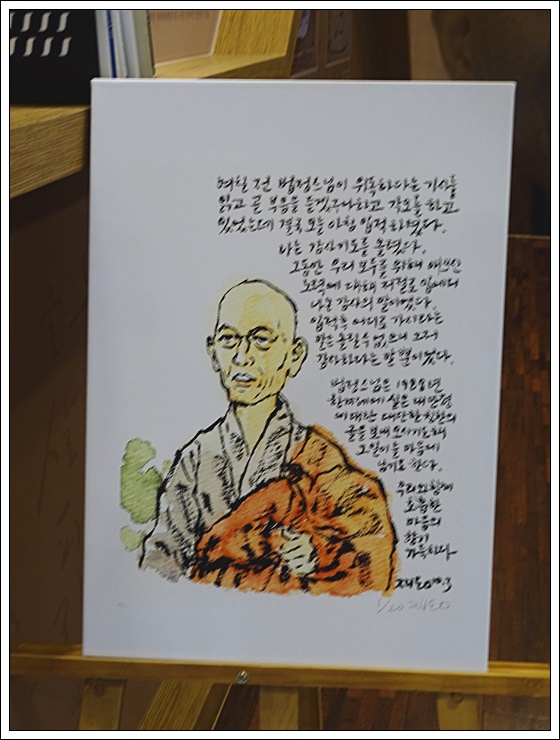 며칠 전 법정스님이 위독하다는 기사를
읽고 곧 부음을 듣겠구나하고 각오를 하고
있었는데 결국 오늘 아침 입적 하셨다.
나는 감사기도를 올렸다.
그동안 우리 모두를 위해 애쓰신
노력에 대해 저절로 입에서
나온 감사의 말이었다.
입적후 어디로 가시라는
말은 올릴수 없으나 그저
감사하다는 말 뿐이었다.
법정스님은 1988년
한겨레에 실은 내 만평
에 대한 대단한 칭찬의
글을 보내 오시기도해
그 일이 늘 마음에
남기도 한다.
우리와 함께
호흡한
마음의
향기
가득하다
재동 2010.3